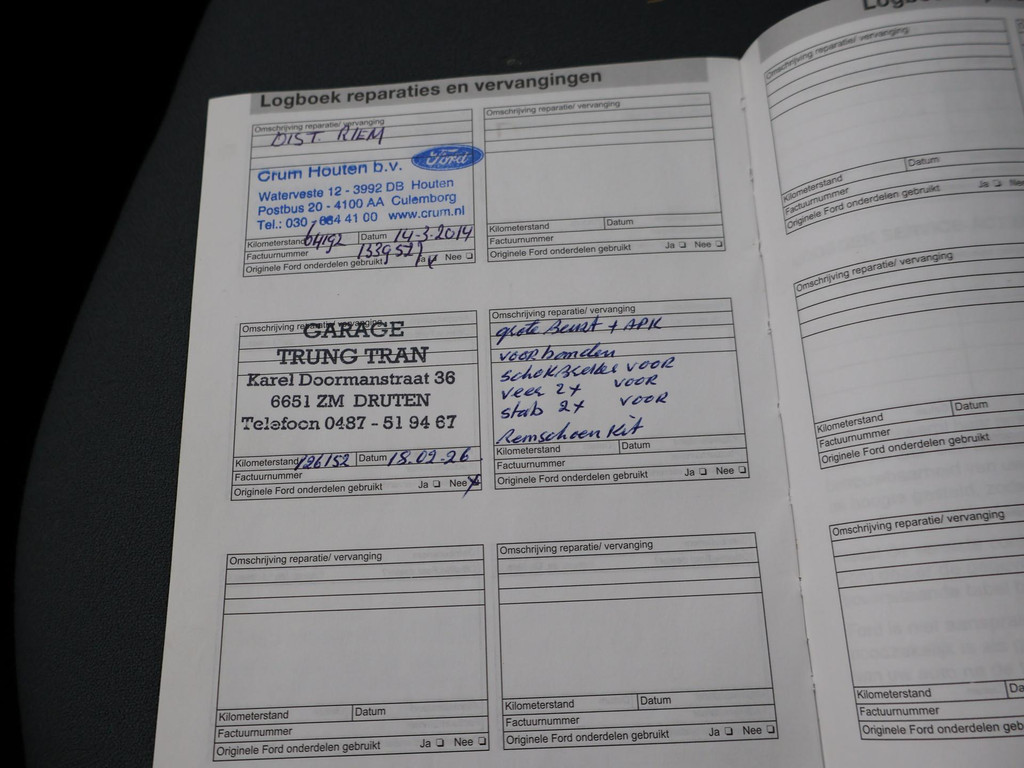 Logboek reparaties en vervangingen
Omschrijving reparatie/ vervanging
DIST. RIEM
Crum Houten b.v. Ford
Waterveste 12 - 3992 DB Houten
Postbus 20 - 4100 AA Culemborg
Tel.: 030 - 634 41 00 www.crum.nl
Kilometerstand 64192 Datum 14-3-2014
Factuurnummer 1339527
Originele Ford onderdelen gebruikt Ja Nee
Omschrijving reparatie/ vervanging
Kilometerstand Datum
Factuurnummer
Originele Ford onderdelen gebruikt Ja Nee
Omschrijving reparatie/ vervanging
GARAGE
TRUNG TRAN
Karel Doormanstraat 36
6651 ZM DRUTEN
Telefoon 0487 - 51 94 67
Kilometerstand 126152 Datum 18-02-26
Factuurnummer
Originele Ford onderdelen gebruikt Ja Nee
Omschrijving reparatie/ vervanging
grote Beurt + APK
voorbanden
schokbreker VOOR
veer 2x VOOR
stab 2x VOOR
Remschoen Kit
Kilometerstand Datum
Factuurnummer
Originele Ford onderdelen gebruikt Ja Nee
Omschrijving reparatie/ vervanging
Kilometerstand Datum
Factuurnummer
Originele Ford onderdelen gebruikt Ja Nee
Omschrijving reparatie/ vervanging
Kilometerstand Datum
Factuurnummer
Originele Ford onderdelen gebruikt Ja Nee
Omschrijving reparatie/ vervanging
Kilometerstand Datum
Factuurnummer
Originele Ford onderdelen gebruikt Ja
Omschrijving reparatie/ vervanging
Kilometerstand Datum
Factuurnummer
Originele Ford onderdelen gebruikt
Omschrijving reparatie/ vervanging
Kilometerstand
Factuurnummer
Originele Ford onderdelen